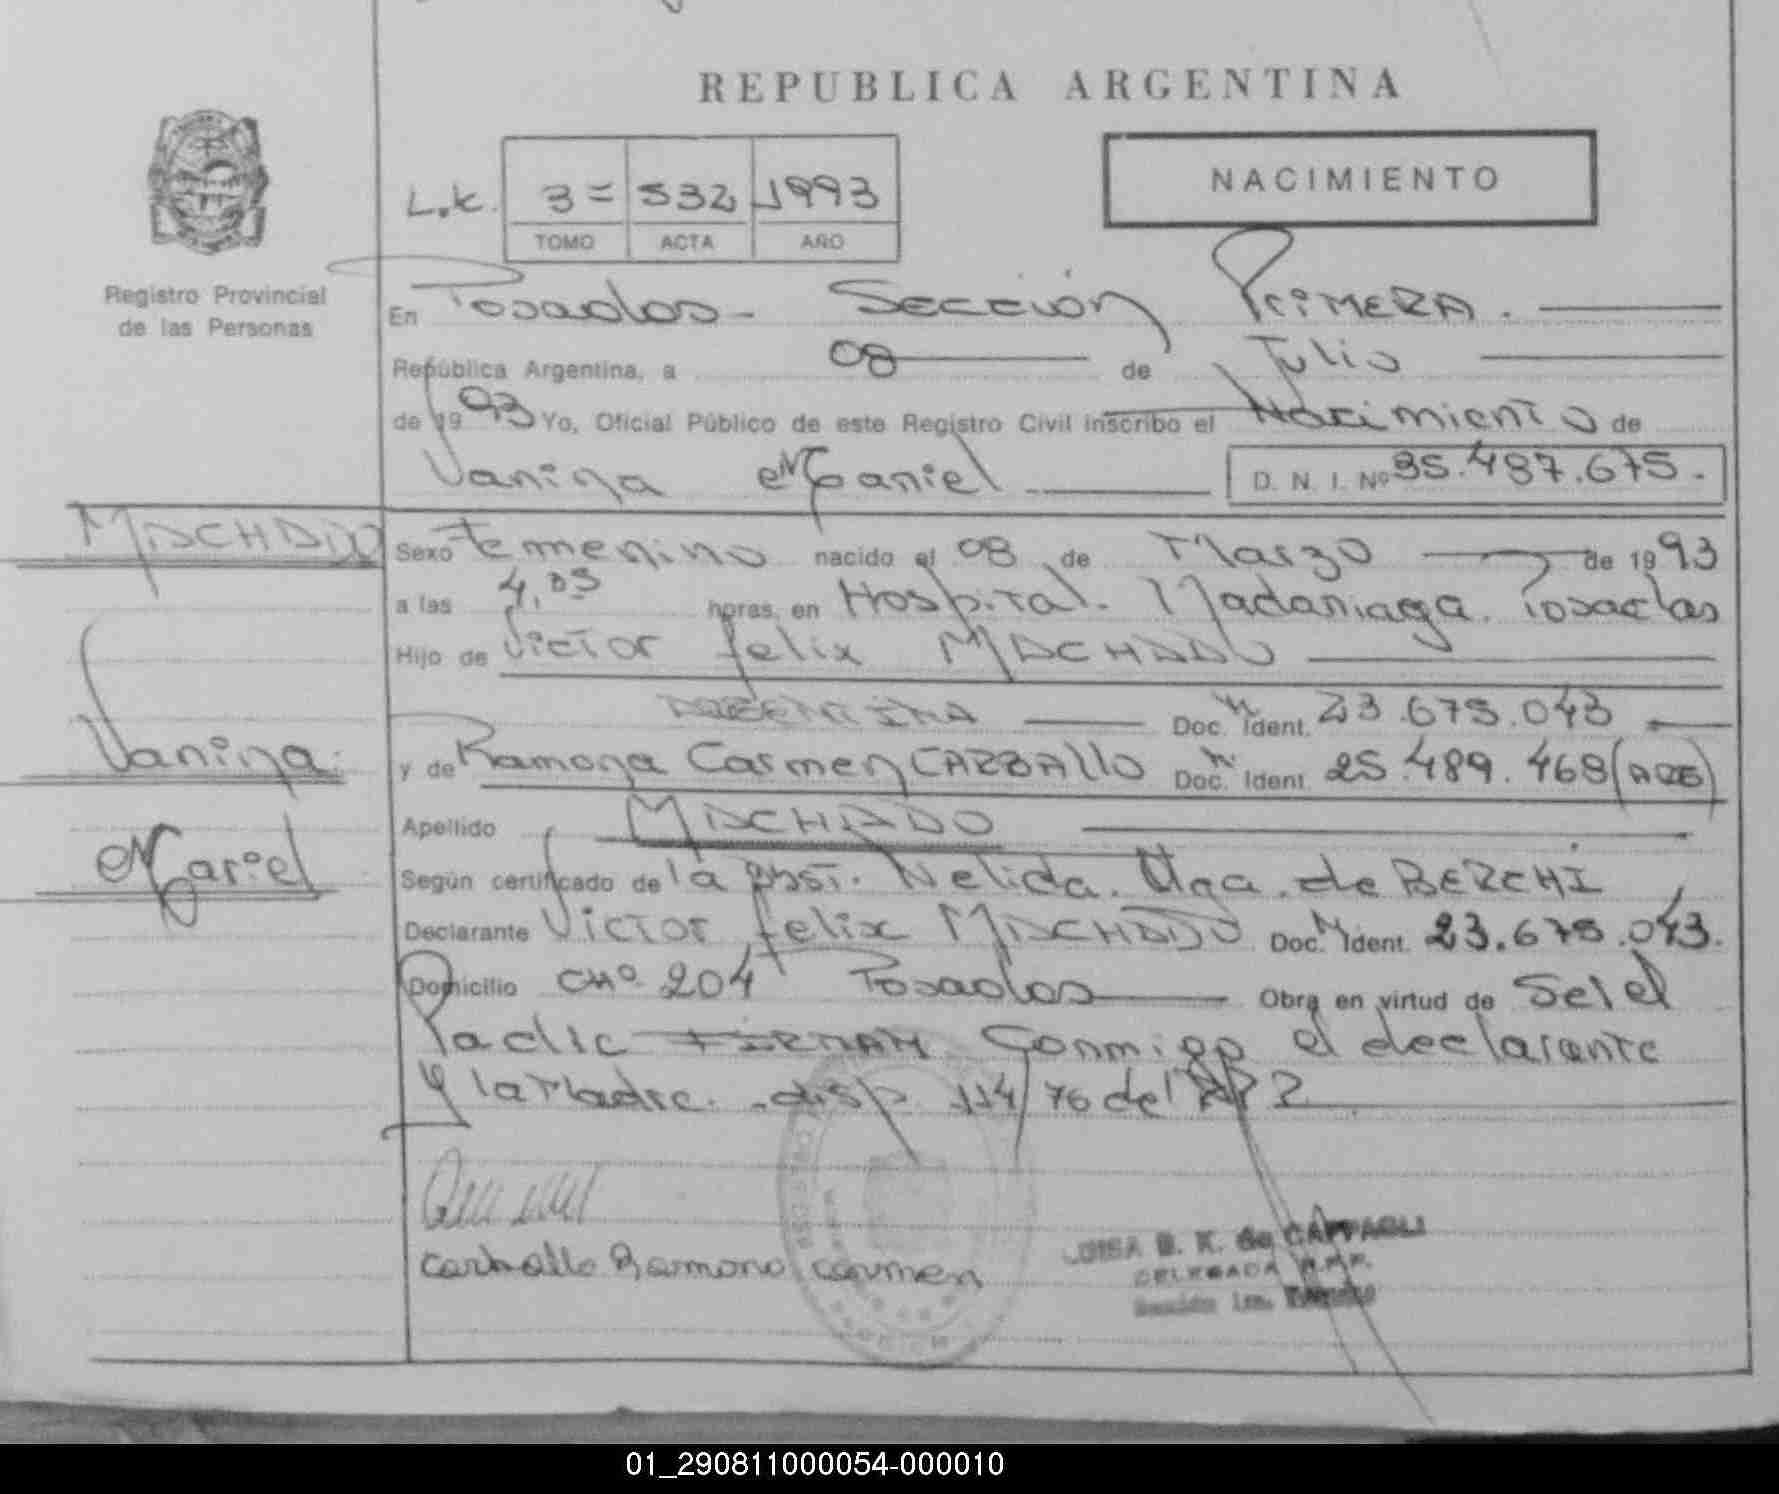 REPUBLICA ARGENTINA
NACIMIENTO
L.k. 3= 532 1993
TOMO ACTA AÑO
Registro Provincial
de las Personas
En Posadas - Sección Primera.
República Argentina, a 08 de Julio
de 1993 Yo, Oficial Público de este Registro Civil inscribo el Nacimiento de
Vanina Mariel D. N. I. Nº 35.487.675.
MACHADO
Sexo femenino nacido el 08 de Marzo de 1993
a las 4,05 horas, en Hospital. Madariaga. Posadas
Hijo de Victor felix MACHADO
ARGENTINA Doc. N Ident. 23.675.043
Vanina
y de Ramona Carmen CARBAllO Doc. N Ident. 25.489.468 (ARG)
Apellido MACHADO
Mariel
Según certificado de la obst. Nelida. Olga. de BERCHI
Declarante Victor felix MACHADO Doc. N Ident. 23.675.043.
Domicilio CHº 204 Posadas Obra en virtud de Ser el
Padre FIRMAN Conmigo el declarante
y la Madre. disp. 114/76 del
Carballo Ramona Carmen
LUISA B. K. de CAPPAGLI
DELEGADA R.P.P.
Sección 1ra. Posadas
01_290811000054-000010